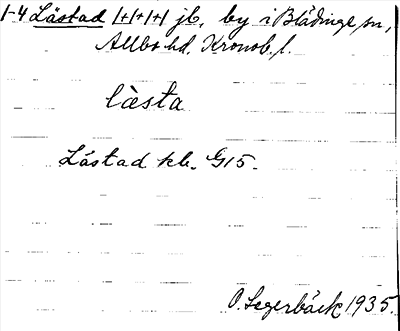 1-4 Låstad 1+1+1+1 jb, by i Blädinge sn,
Allbo hd. Kronob. l.
lȧ̀sta
Låstad kb. G15.
O. Segerbäck 1935.